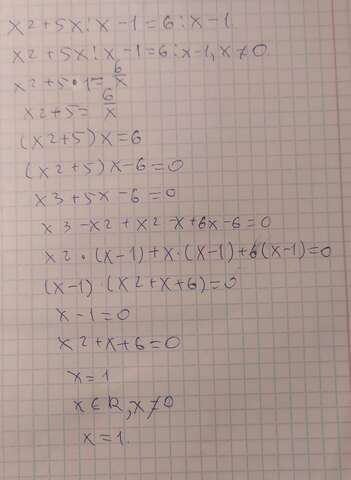 x2+5x:x-1=6:x-1
x2+5x:x-1=6:x-1, x≠0
x2+5·1=6/x
x2+5=6/x
(x2+5)x=6
(x2+5)x-6=0
x3+5x-6=0
x3-x2+x2-x+6x-6=0
x2·(x-1)+x·(x-1)+6(x-1)=0
(x-1)·(x2+x+6)=0
x-1=0
x2+x+6=0
x=1
x∈R, x≠0
x=1